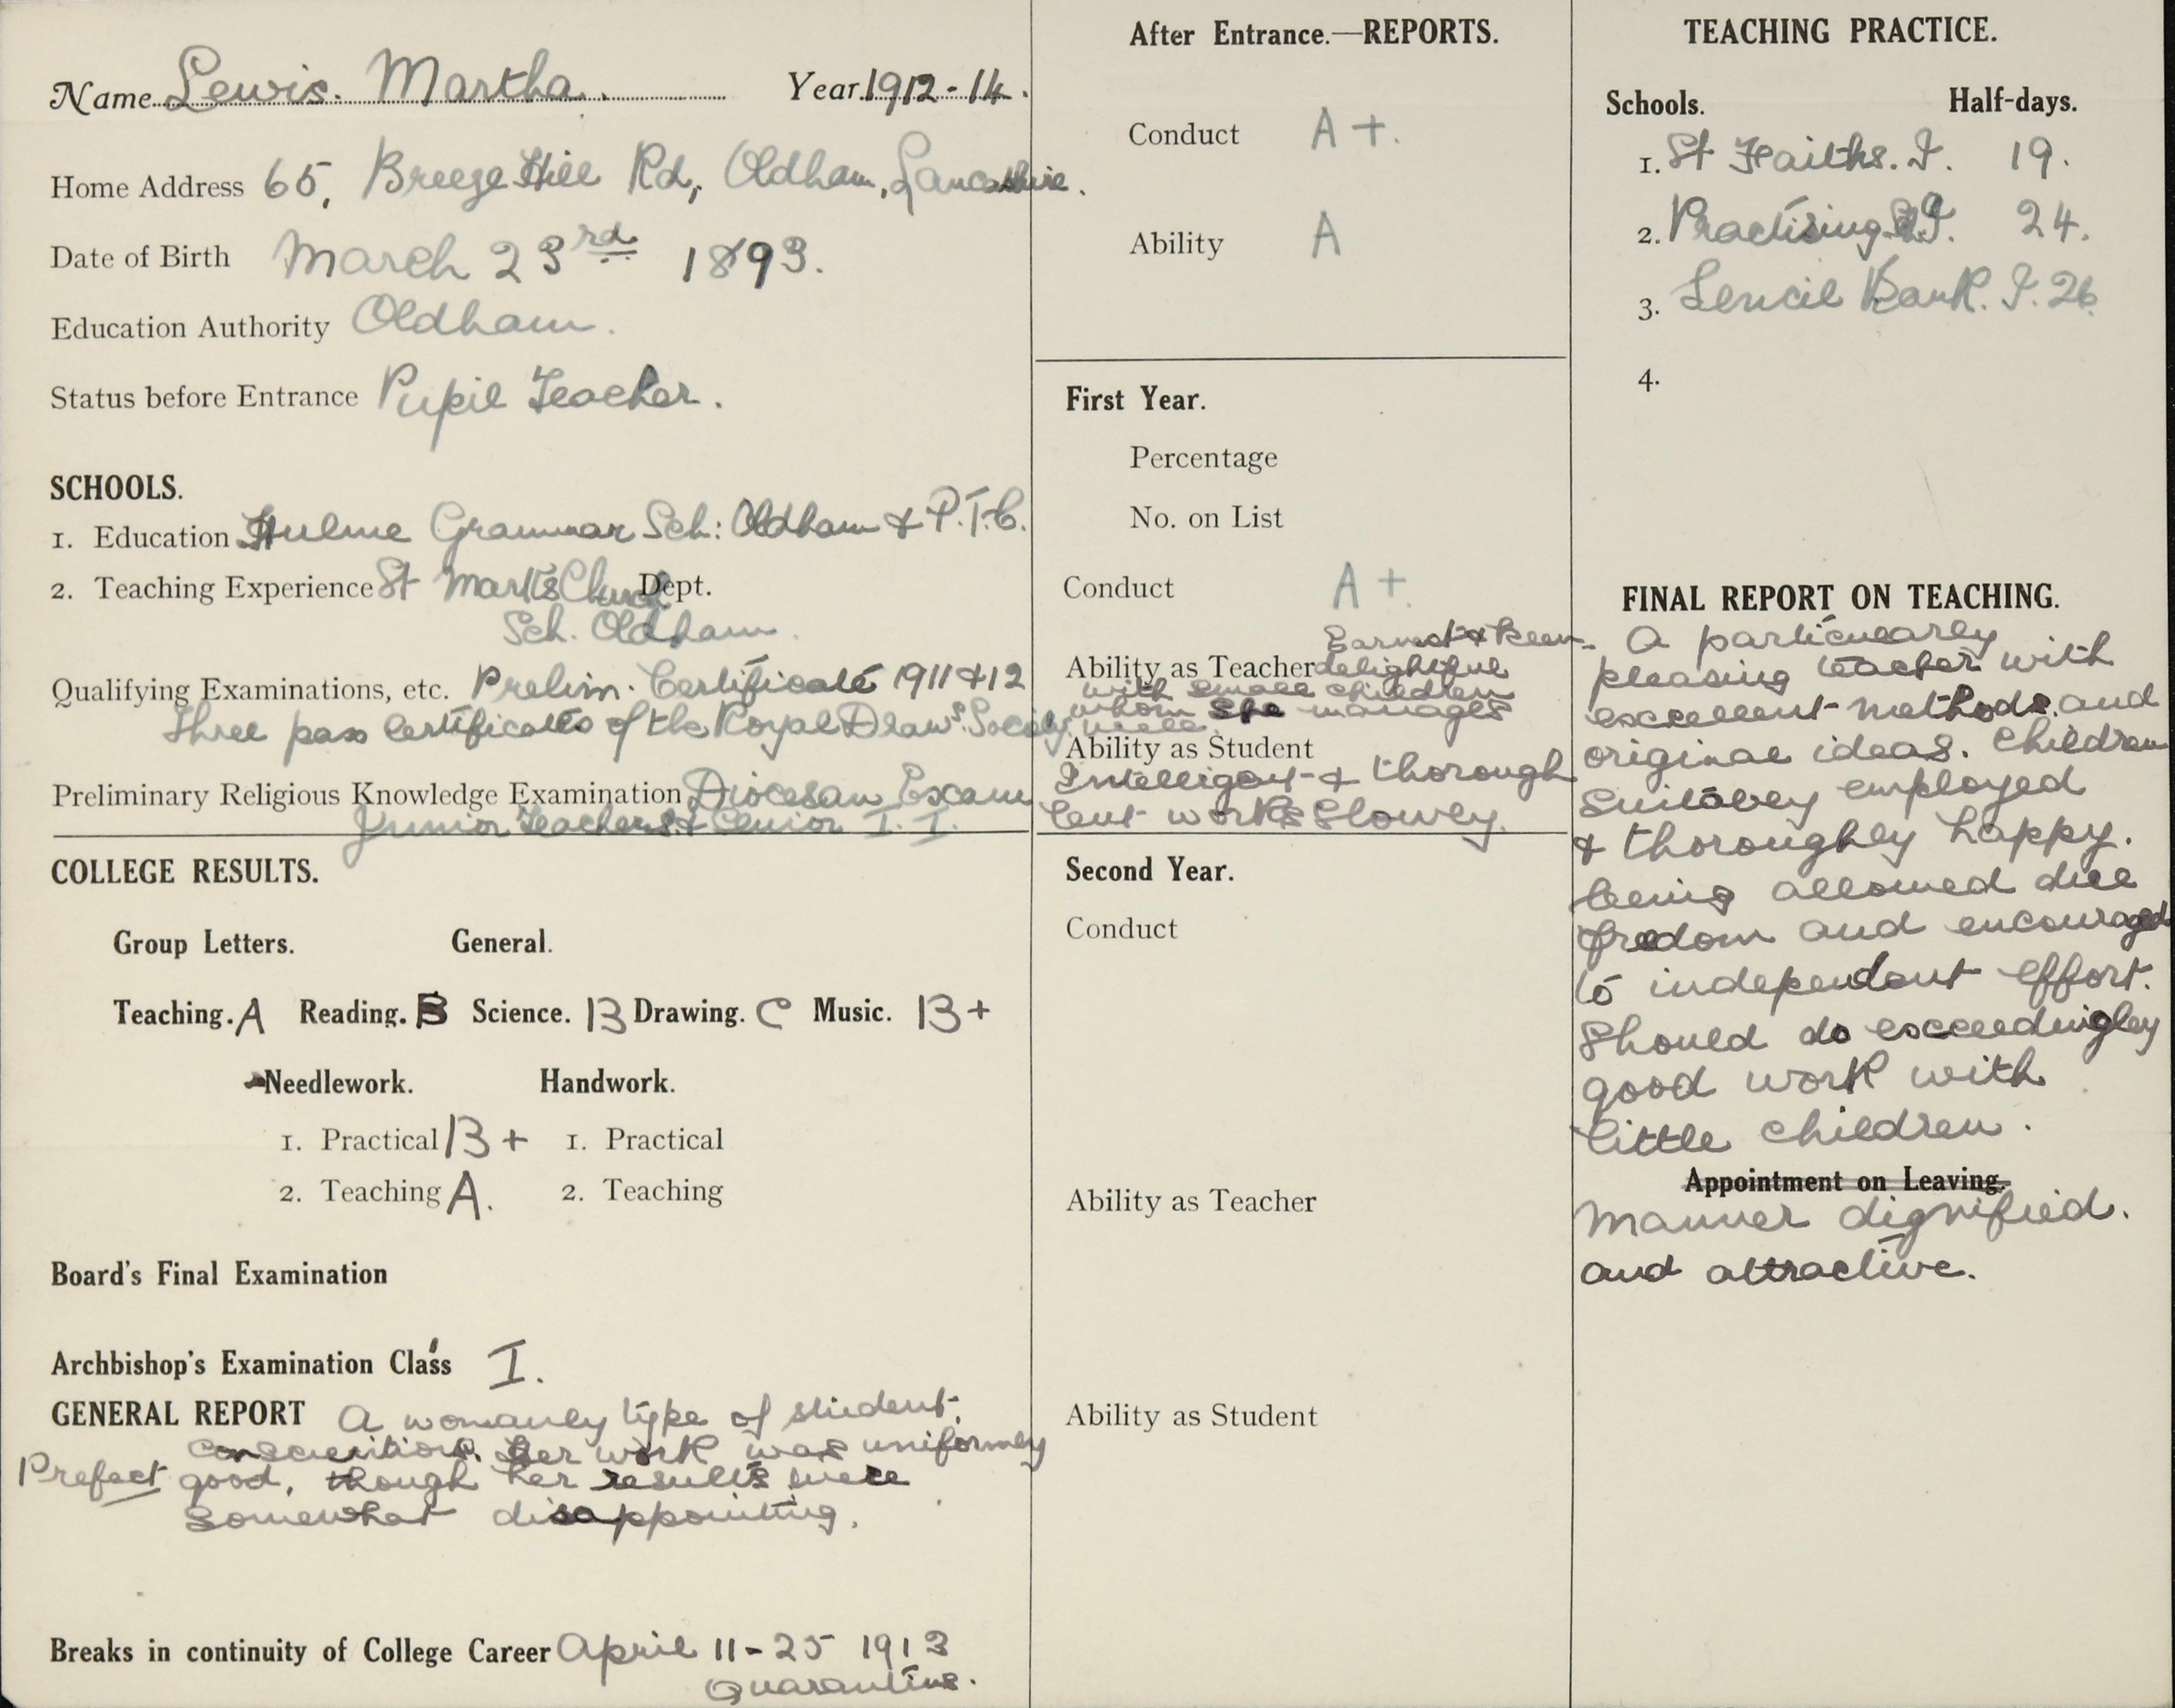 Name Lewis. Martha. Year 1912-14.
Home Address 65, Breeze Hill Rd, Oldham, Lancashire.
Date of Birth March 23rd 1893.
Education Authority Oldham.
Status before Entrance Pupil Teacher.
SCHOOLS.
1. Education Hulme Grammar Sch: Oldham & P.T.C.
2. Teaching Experience St Mark's Church Dept.
Sch. Oldham.
Qualifying Examinations, etc. Prelim. Certificate 1911 & 12
Three pass Certificates of the Royal Draw. Society.
Preliminary Religious Knowledge Examination Diocesan Exam
Junior Teachers & Senior I. I.
COLLEGE RESULTS.
Group Letters. General.
Teaching. A Reading. B Science. B Drawing. C Music. B+
Needlework. Handwork.
1. Practical B+ 1. Practical
2. Teaching A. 2. Teaching
Board's Final Examination
Archbishop's Examination Class I.
GENERAL REPORT A womanly type of student,
conscientious. Her work was uniformly
Prefect good, though her results were
somewhat disappointing.
Breaks in continuity of College Career April 11-25 1913
Quarantine.
After Entrance.—REPORTS.
Conduct A+.
Ability A
First Year.
Percentage
No. on List
Conduct A+.
Earnest & keen.
Ability as Teacher delightful
with small children
whom she manages
well.
Ability as Student
Intelligent & thorough
but works slowly.
Second Year.
Conduct
Ability as Teacher
Ability as Student
TEACHING PRACTICE.
Schools. Half-days.
1. St Faiths. I. 19.
2. Practising I. 24.
3. Sencil Bank. I. 26.
4.
FINAL REPORT ON TEACHING.
A particularly
pleasing teacher with
excellent methods and
original ideas. Children
suitably employed
& thoroughly happy.
being allowed due
freedom and encouraged
to independent effort.
Should do exceedingly
good work with
little children.
Appointment on Leaving.
Manner dignified.
and attractive.